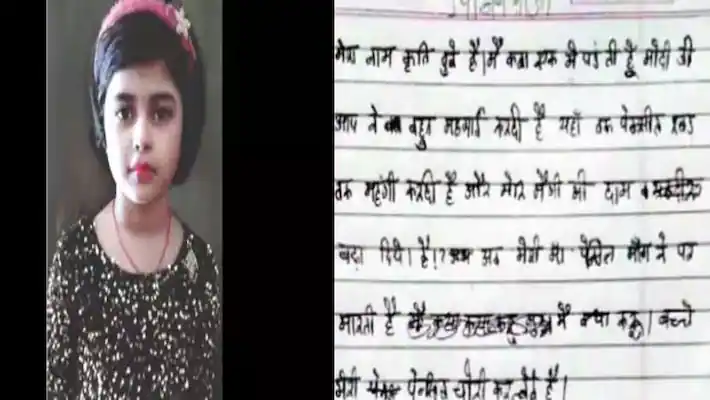 मेरा नाम कृति दुबे है। मै कक्षा एक मे पढती हूँ मोदी जी
आप ने बहुत महगाई करदी है यहाँ तक पेन्सील रबड
तक महंगी करदी है और मेरे मैगी की दाम
बढा दिये। है।? अब मेरी माँ पेन्सिल माँग ने पर
मारती है मै क्या करू। बच्चे
मेरी पेन्सिल चोरी कर लेते है।